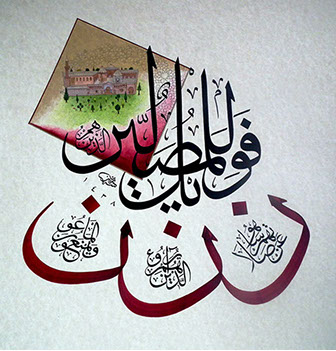 فويل للمصلين
الذين هم
عن صلاتهم ساهون
الذين هم يراءون
ويمنعون الماعون